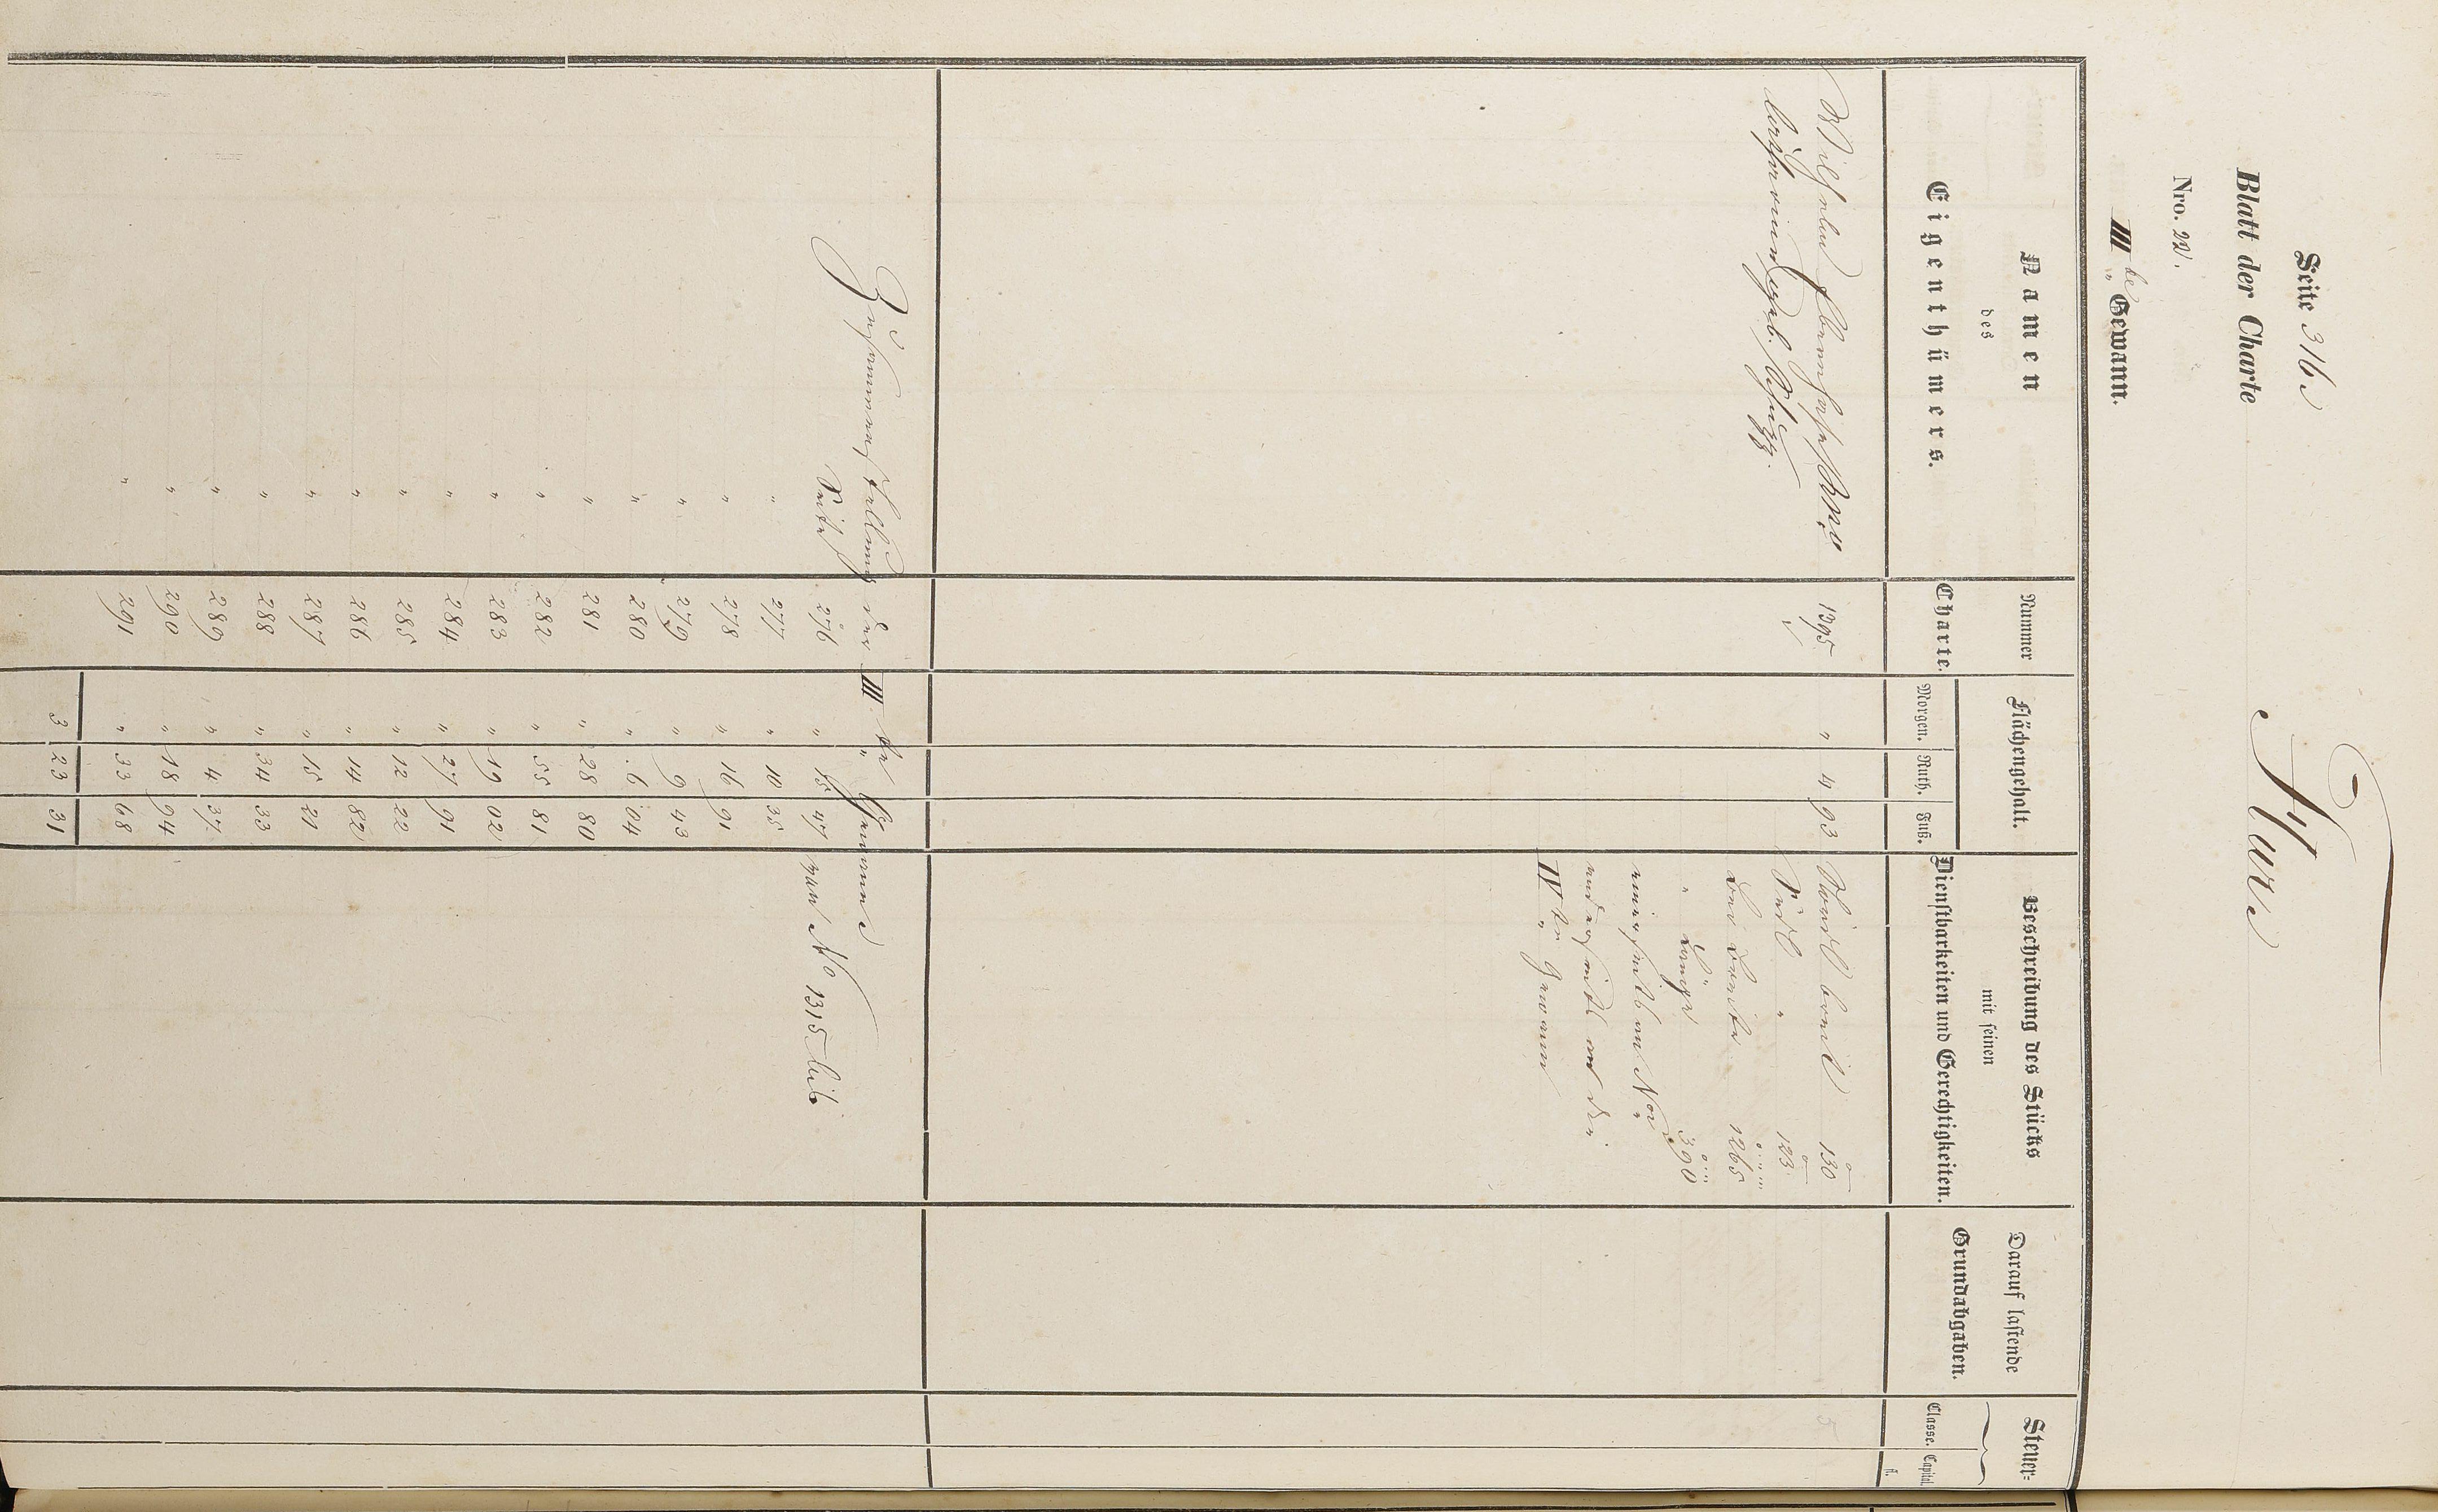 Seite 316
Flur
Blatt der Charte
Nro. 22.
III te Gewann.
Namen
des
Eigenthümers.
Nummer
Charte.
Flächengehalt.
Morgen. Ruth. Fuß.
Beschreibung des Stücks
mit seinen
Dienstbarkeiten und Gerechtigkeiten.
Darauf lastende
Grundabgaben.
Steuer-
Classe. Capital.
fl.
Wilhelm 1395 " 4 93 breit 130 5
geb. " 123
die Breite 1265
" Länge 390
einerseits am Nro
anderseits an der
IV te Gewann
Zusammenstellung der III te Gewann
Seite 276 " 15 47 von No 1315 bis
" 277 " 10 35
" 278 " 16 91
" 279 " 9 43
" 280 " 6 04
" 281 " 28 80
" 282 " 55 81
" 283 " 19 02
" 284 " 27 91
" 285 " 12 22
" 286 " 14 82
" 287 " 15 21
" 288 " 34 33
" 289 " 4 37
" 290 " 18 94
" 291 " 33 68
3 23 31